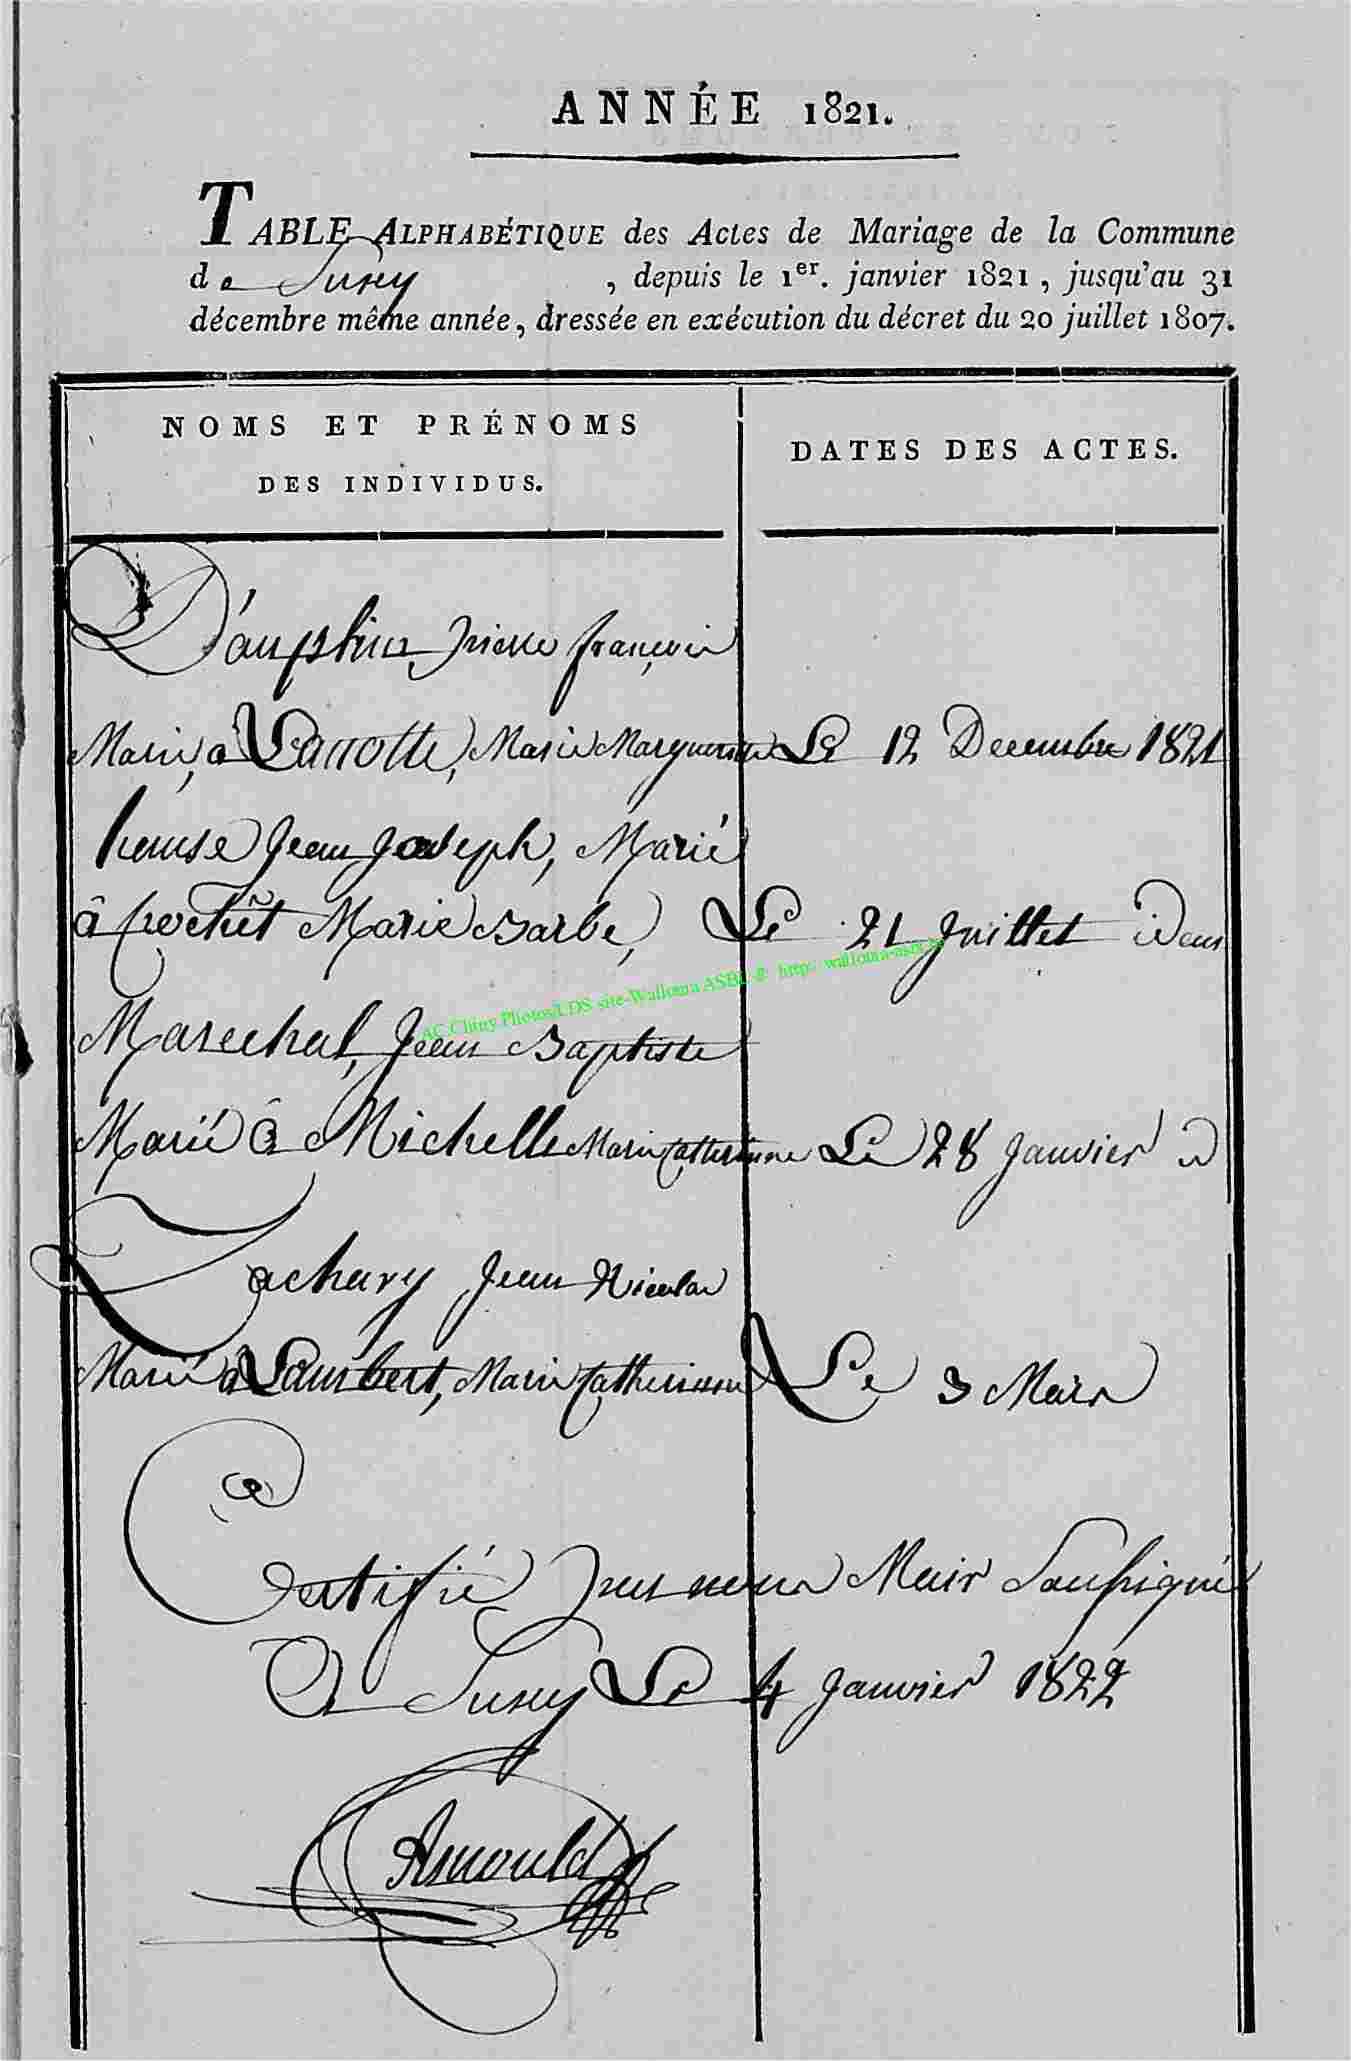 ANNÉE 1821.
TABLE ALPHABÉTIQUE des Actes de Mariage de la Commune
de Suxy , depuis le 1er. janvier 1821, jusqu'au 31
décembre même année, dressée en exécution du décret du 20 juillet 1807.
NOMS ET PRÉNOMS
DES INDIVIDUS.
DATES DES ACTES.
Dauphin, pierre françois
Marié, a Lamotte, Marie Marguerite Le 12 Decembre 1821
Jean Joseph, Marié
â Crochêt Marie Barbe, Le 21 Juillet idem
AC Chiny Photos/LDS site-Walloura ASBL
Marechal, Jean Baptiste
Marié â Michelle Marie Catherinne Le 28 Janvier id
Zachary Jean Nicolas
Marié a Lambert, Marie Catherinne Le 3 Mars
Certifié par nous Mair Soussigné
A Suxy Le 4 Janvier 1822
Arnould